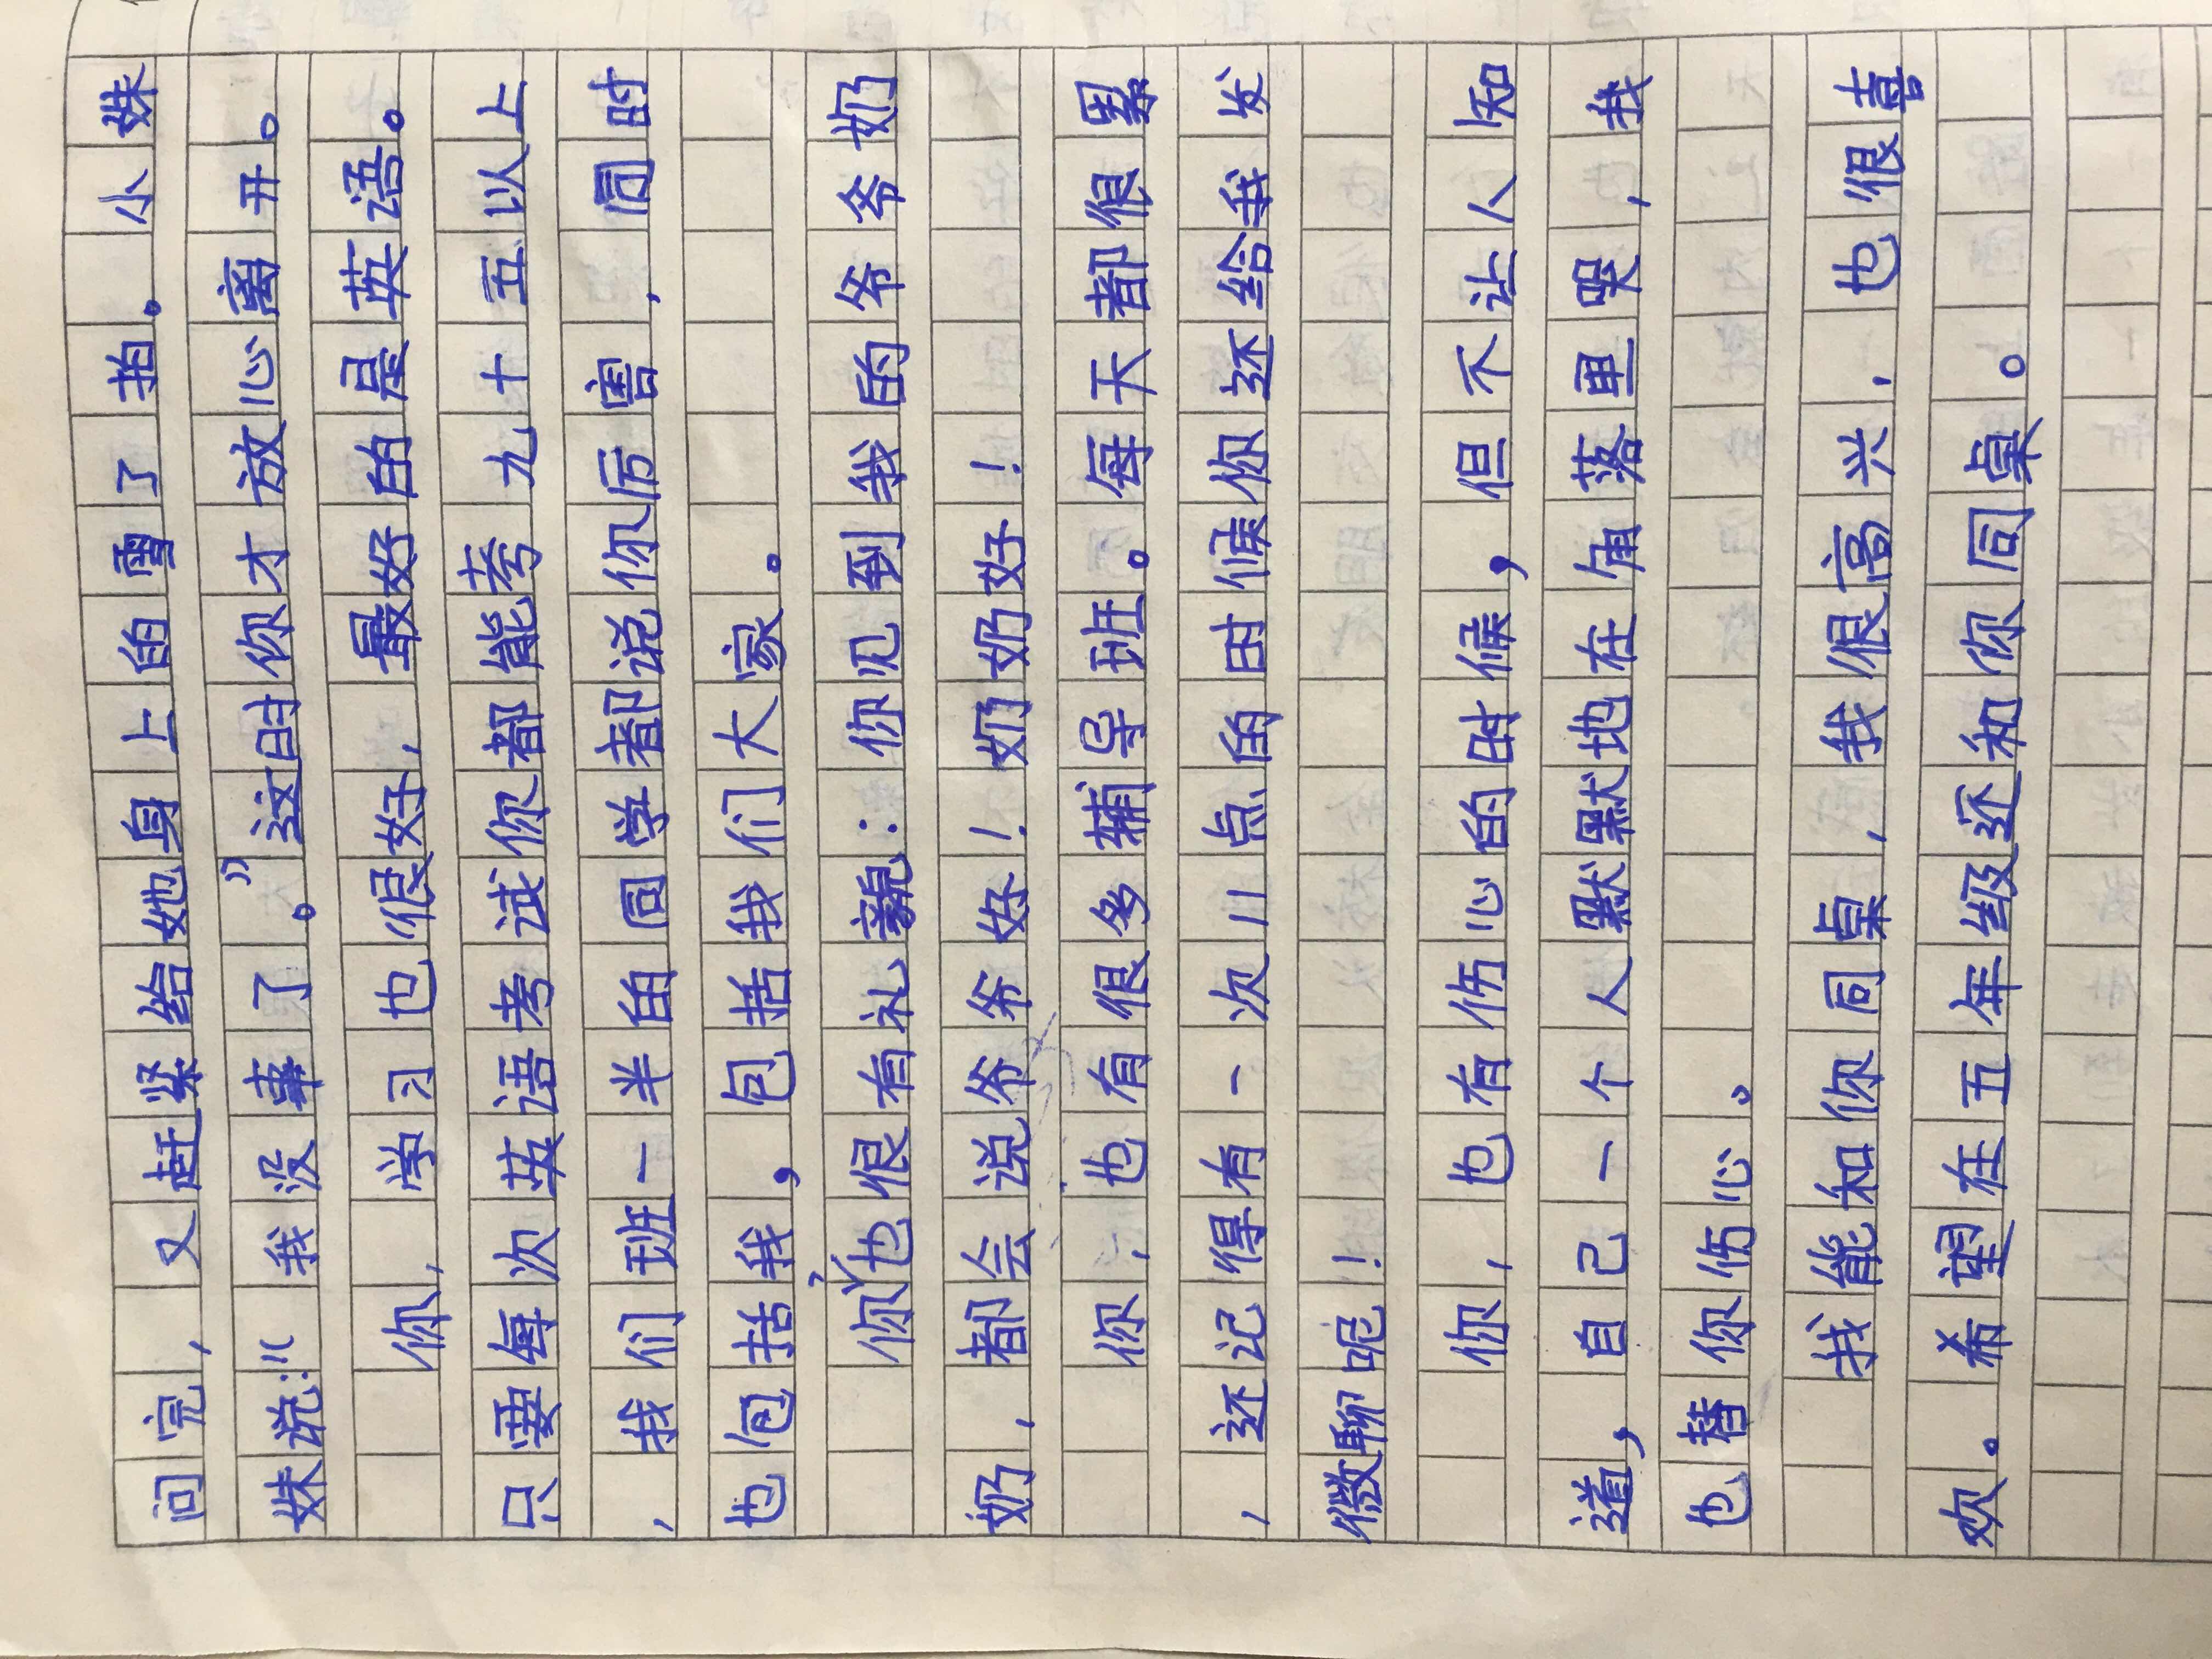 问完，又赶紧给她身上的雪了拍。小妹
妹说：“我没事了。”这时你才放心离开。
你，学习也很好，最好的是英语。
只要每次英语考试你都能考九十五以上
，我们班一半的同学都说你厉害，同时
也包括我，包括我们大家。
你，也很有礼貌：你见到我的爷爷奶
奶，都会说爷爷好！奶奶好！
你，也有很多辅导班。每天都很累
，还记得有一次11点的时候你还给我发
微聊呢！
你，也有伤心的时候，但不让人知
道，自己一个人默默地在角落里哭，我
也替你伤心。
我能和你同桌，我很高兴，也很喜
欢。希望在五年级还和你同桌。